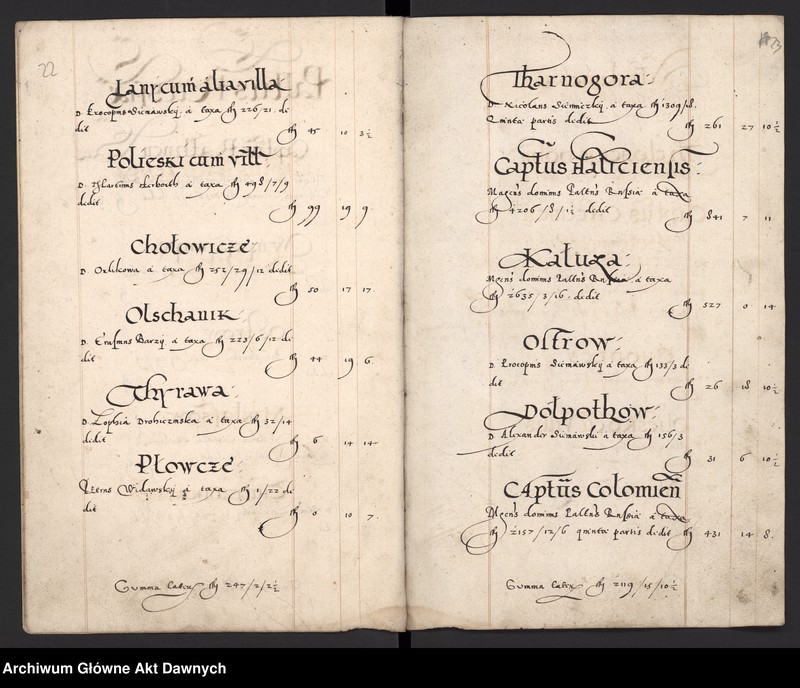 22
Lanÿ cum alia villa
D. Procopius Sienawskÿ a taxa fl 226/21. de
dit fl 45 10 3½
Polieski cum vill
D. Martinus Herborth a taxa fl 498/7/9
dedit fl 99 19 9
Chołowicze
D. Orlikowa a taxa fl 252/29/12 dedit
fl 50 17 17
Olschanik
D. Erasmus Barzÿ a taxa fl 223/6/12 de
dit fl 44 19 6
Thÿrawa
D. Zophia Drohiczinska a taxa fl 32/14
dedit fl 6 14 14
Płowcze
Petrus Widawskÿ a taxa fl 1/22 de
dit fl 0 10 7
Summa lateris fl 247/2/2½
23
Tharnogora
D. Nicolaus Sienniczkÿ a taxa fl 1309/18.
Quinta partis dedit fl 261 27 10½
Captus Haliciensis
Magcus dominus Paltnus Russia a taxa
fl 4206/8/1½ dedit fl 841 7 11
Kałuza
Mgcus dominus Paltnus Russia a taxa
fl 2635/3/16 dedit fl 527 0 14
Ostrow
D. Procopius Sienawskÿ a taxa fl 133/3 de
dit fl 26 18 10½
Dołpothow
D. Alexander Sienawski a taxa fl 156/3
dedit fl 31 6 10½
Captus Colomien
Mgcus dominus Paltnus Russia a taxa
fl 2157/12/6 quinta partis dedit fl 431 14 8
Summa lateris fl 2119/15/10½
Archiwum Główne Akt Dawnych